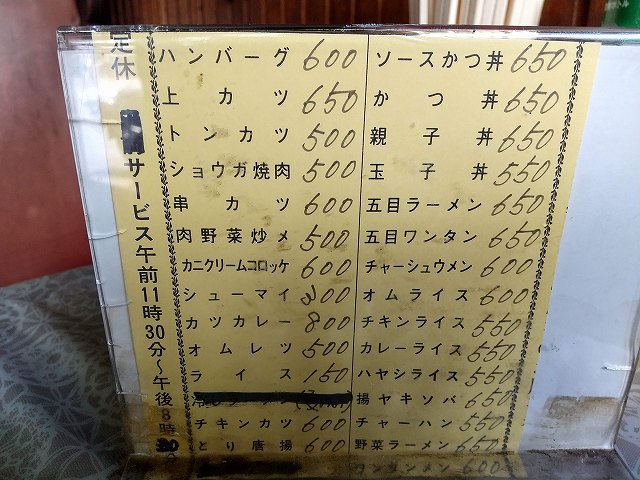 定休
サービス午前11時30分〜午後8時
ハンバーグ 600
上カツ 650
トンカツ 500
ショウガ焼肉 500
串カツ 600
肉野菜炒メ 500
カニクリームコロッケ 600
シューマイ 300
カツカレー 800
オムレツ 500
ライス 150
チキンカツ 600
とり唐揚 600
ソースかつ丼 650
かつ丼 650
親子丼 650
玉子丼 550
五目ラーメン 650
五目ワンタン 650
チャーシュウメン 600
オムライス 600
チキンライス 550
カレーライス 550
ハヤシライス 550
揚ヤキソバ 650
チャーハン 550
野菜ラーメン 650
タンタンメン 600